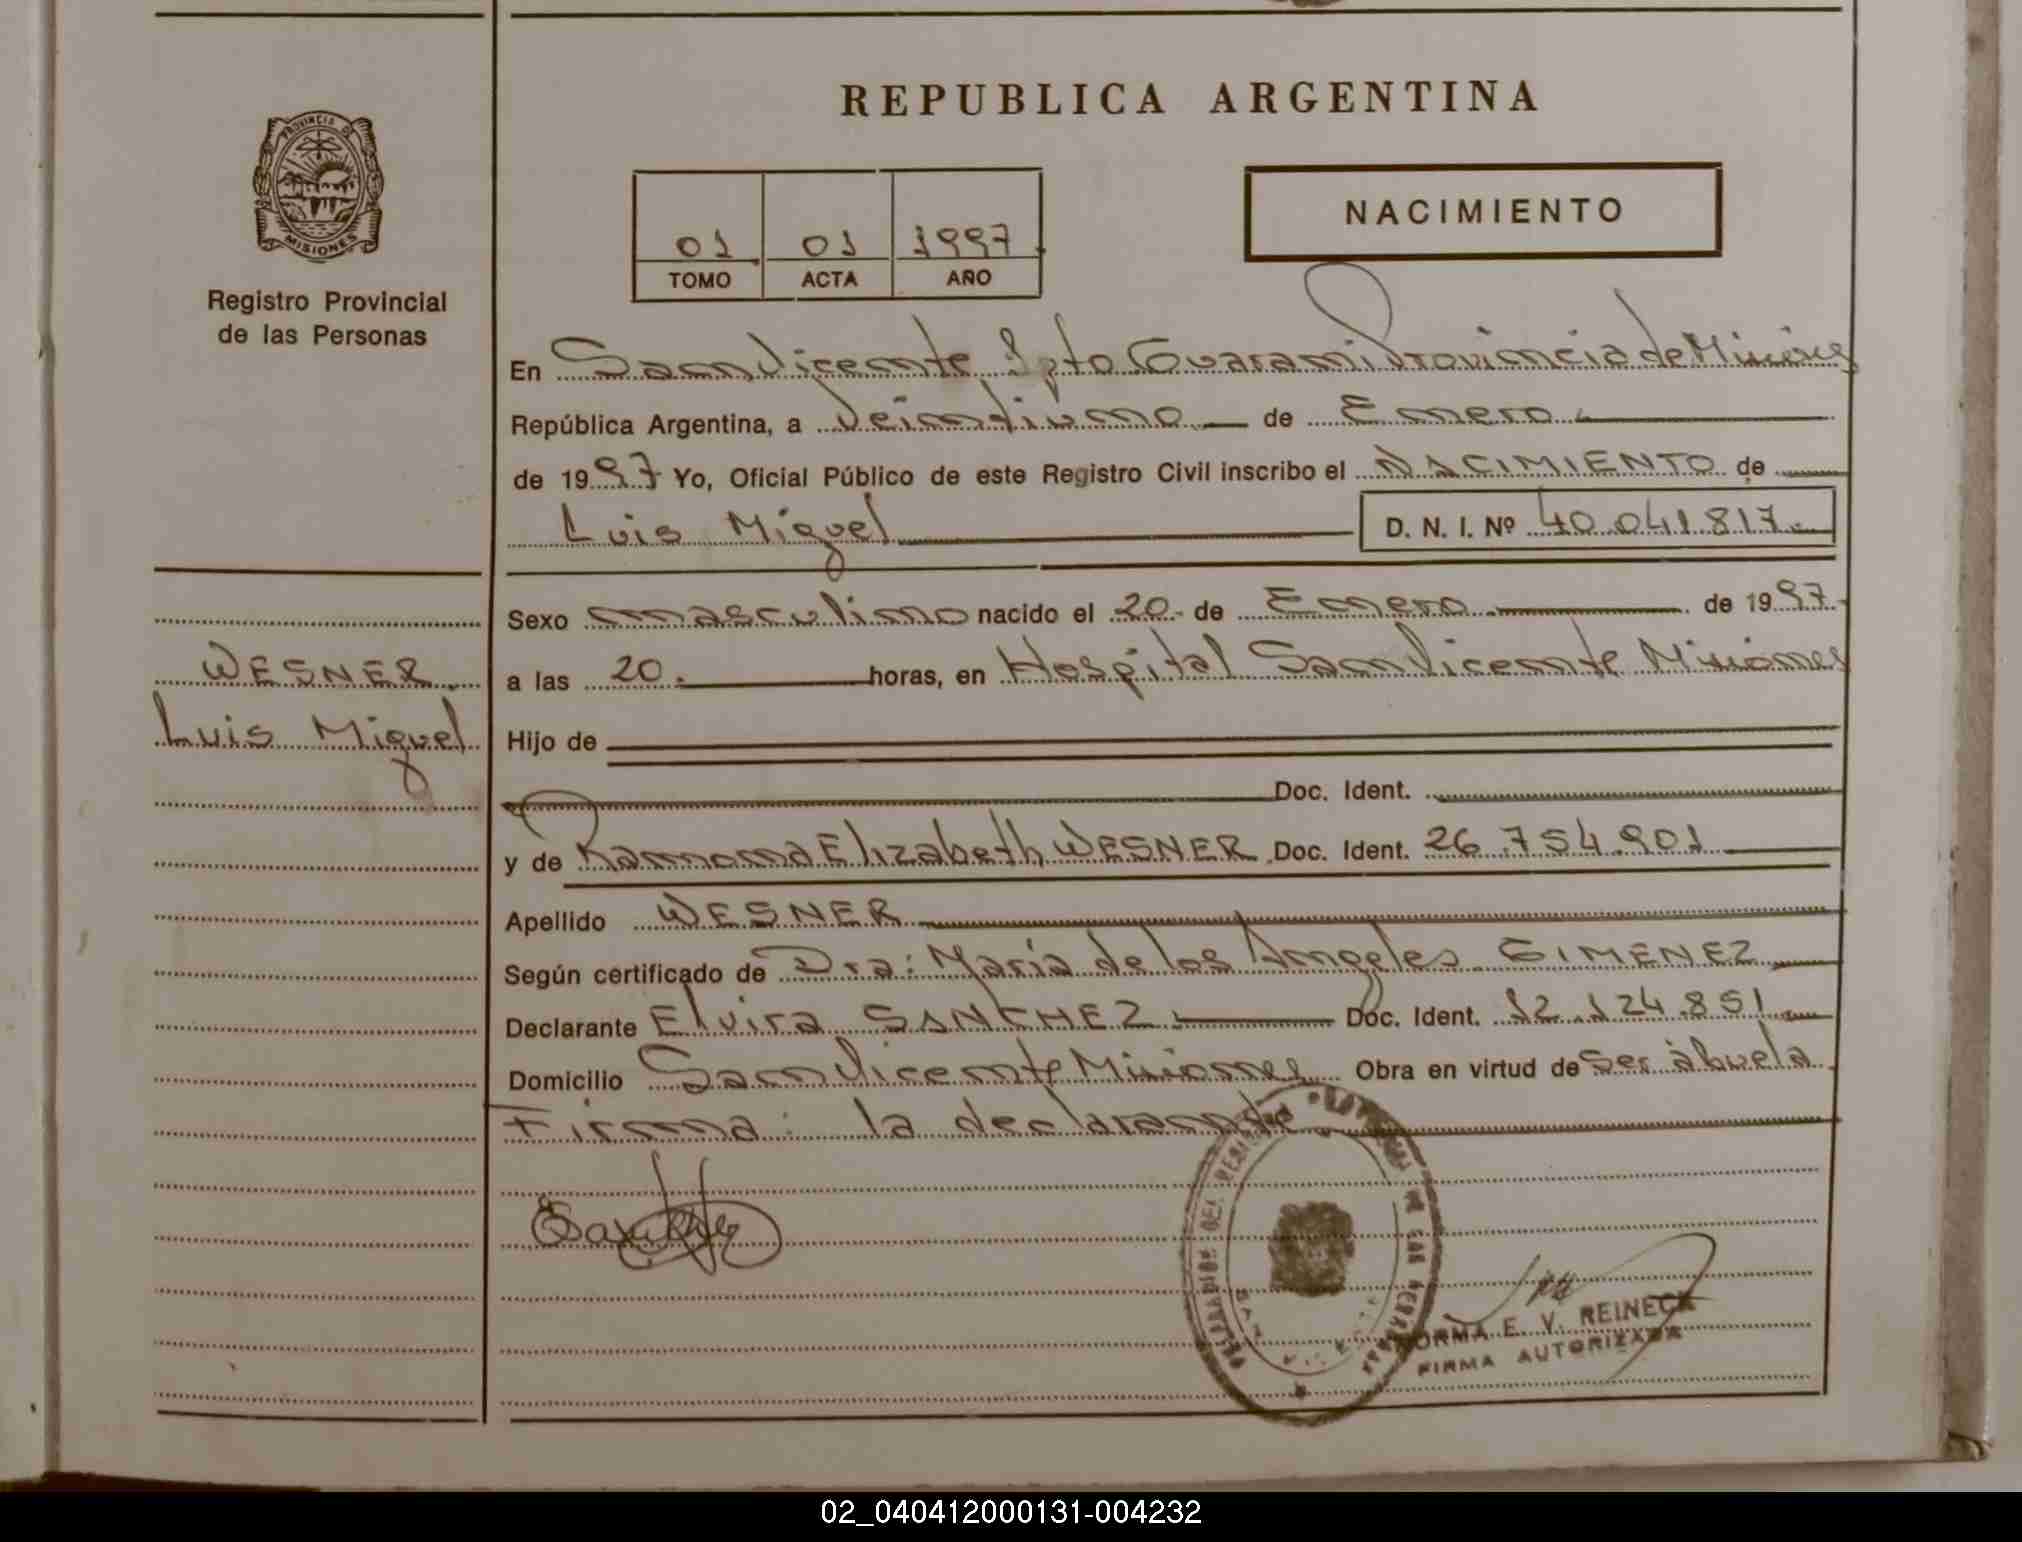 REPUBLICA ARGENTINA
PROVINCIA DE
MISIONES
Registro Provincial
de las Personas
01 01 1997
TOMO ACTA AÑO
NACIMIENTO
En San Vicente Dpto Guarani Provincia de Misiones
República Argentina, a Veintiuno de Enero
de 1997 Yo, Oficial Público de este Registro Civil inscribo el NACIMIENTO de
Luis Miguel D. N. I. Nº 40.041.817
Sexo masculino nacido el 20 de Enero de 1997
WESNER a las 20 horas, en Hospital San Vicente Misiones
Luis Miguel Hijo de
Doc. Ident.
y de Ramona Elizabeth WESNER Doc. Ident. 26.754.901
Apellido WESNER
Según certificado de Dra: María de los Angeles GIMENEZ
Declarante Elvira SANCHEZ Doc. Ident. 12.124.851
Domicilio San Vicente Misiones Obra en virtud de ser abuela
Firma: la declarante
NORMA E. V. REINECK
FIRMA AUTORIZADA
02_040412000131-004232